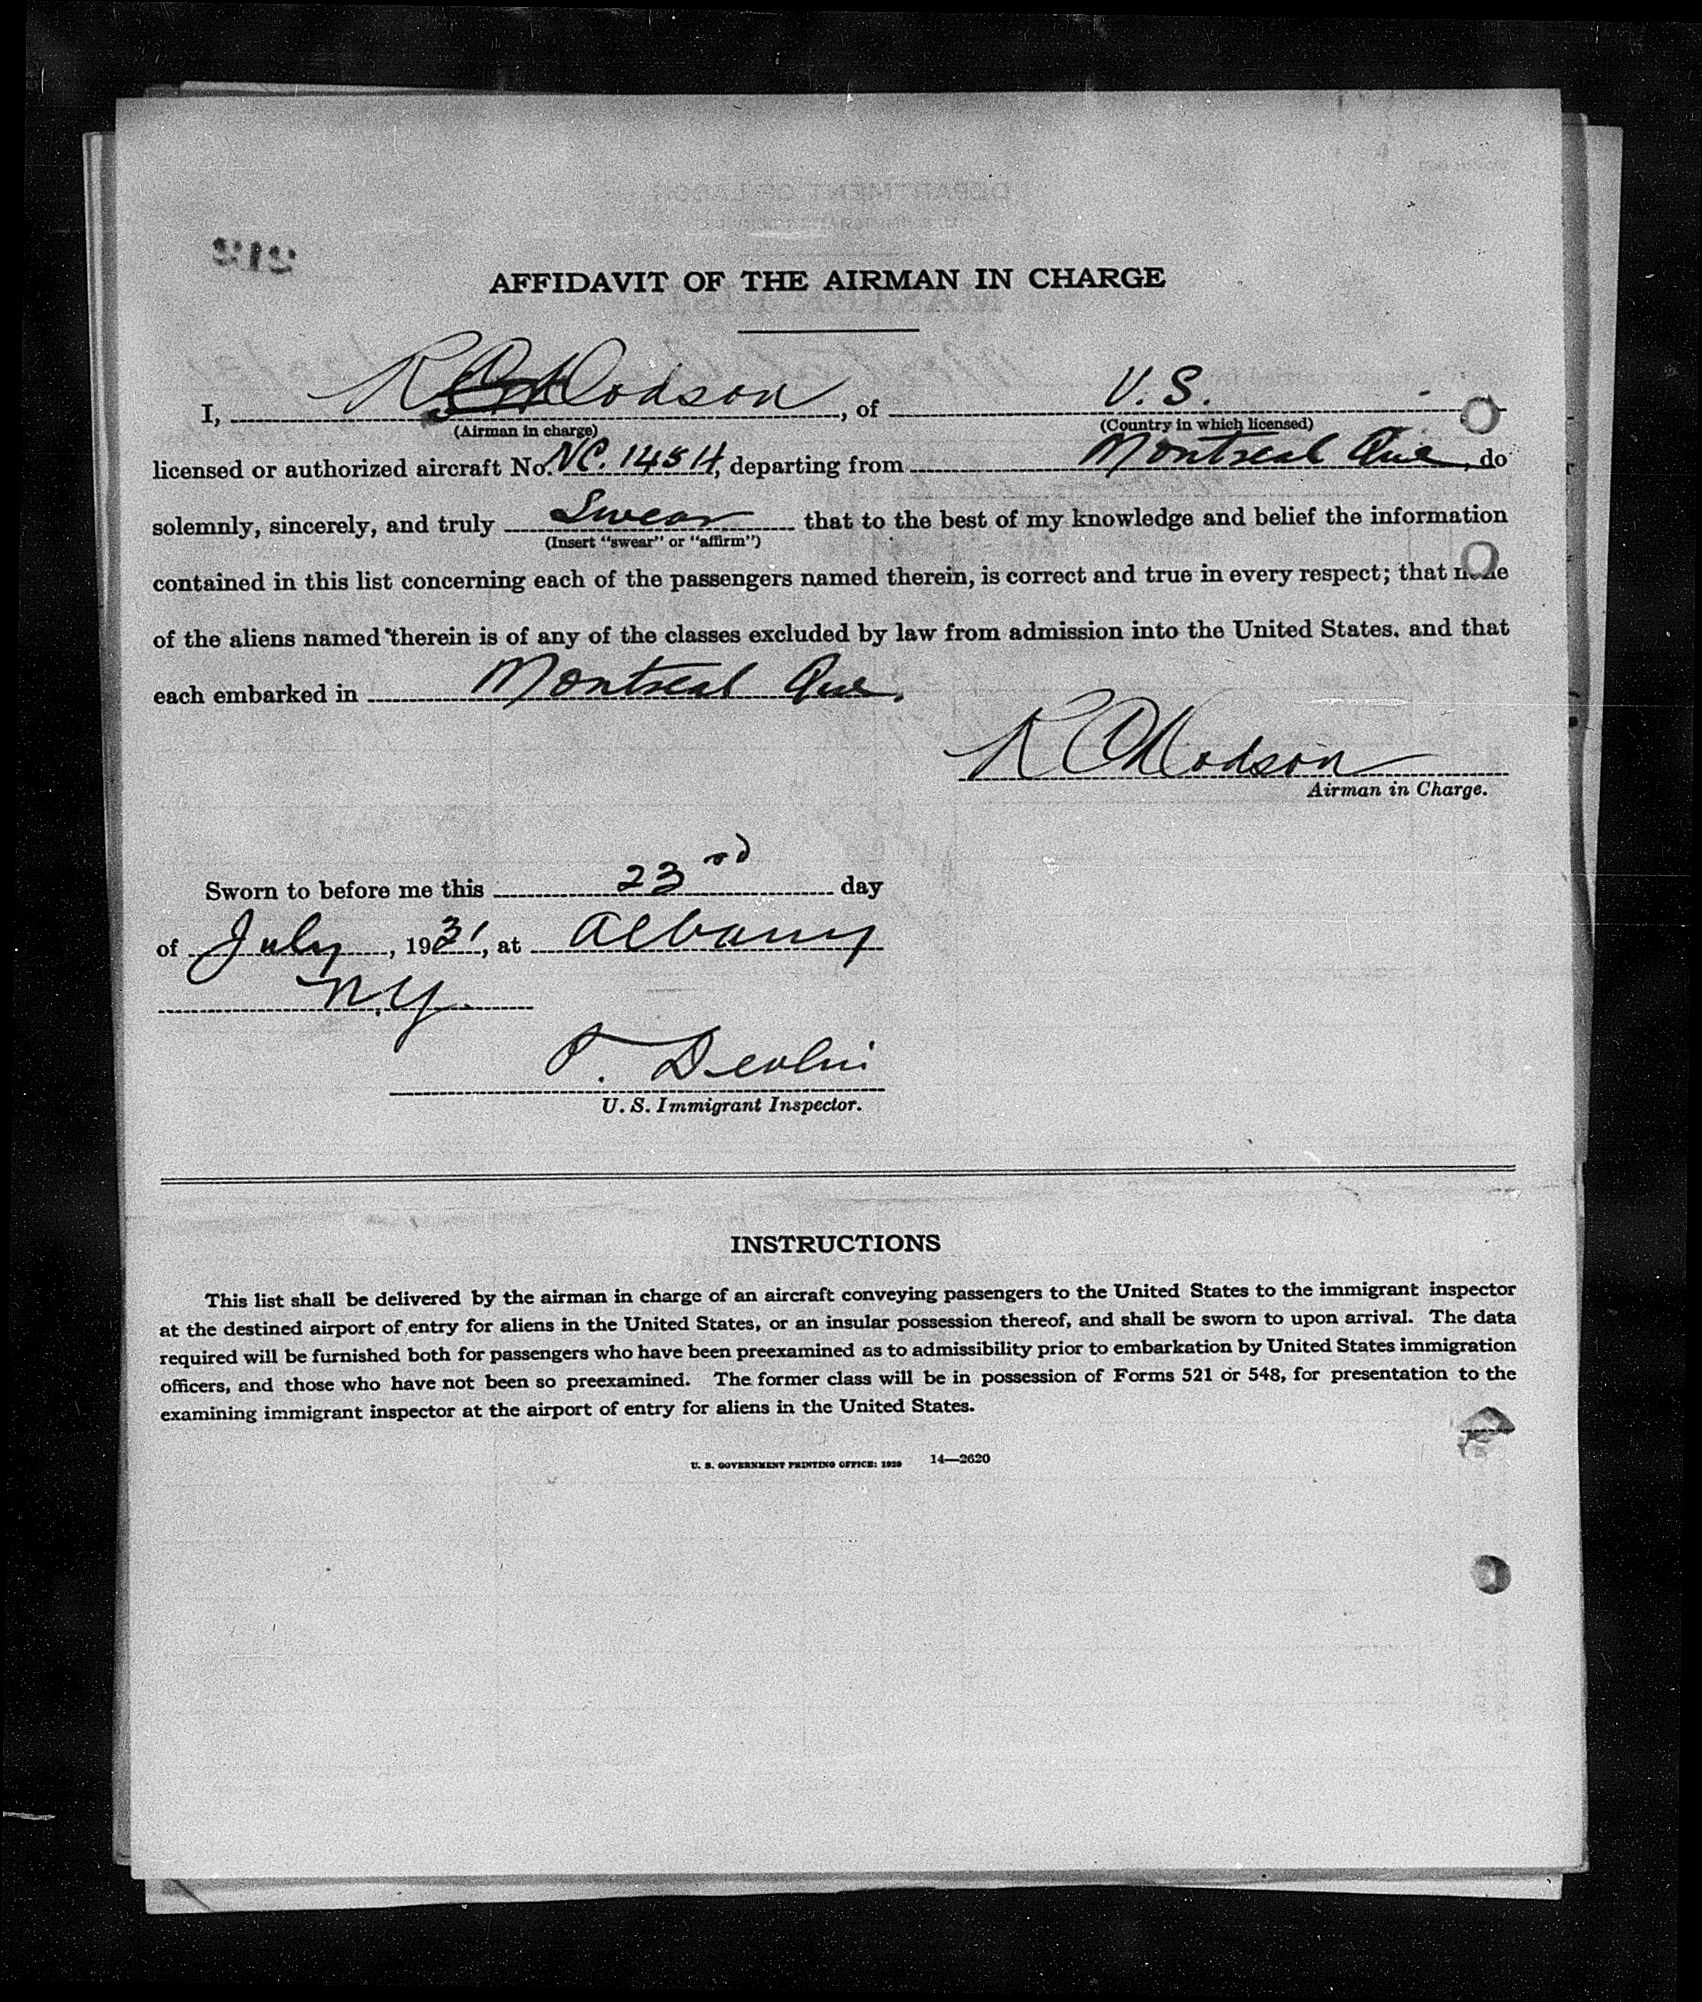 AFFIDAVIT OF THE AIRMAN IN CHARGE
I, R C Hodson, of U.S.
(Airman in charge) (Country in which licensed)
licensed or authorized aircraft No. NC. 145H, departing from Montreal Que, do
solemnly, sincerely, and truly Swear that to the best of my knowledge and belief the information
(Insert "swear" or "affirm")
contained in this list concerning each of the passengers named therein, is correct and true in every respect; that none
of the aliens named therein is of any of the classes excluded by law from admission into the United States, and that
each embarked in Montreal Que.
R C Hodson
Airman in Charge.
Sworn to before me this 23rd day
of July, 1931, at Albany
N.Y.
P. Devlin
U. S. Immigrant Inspector.
INSTRUCTIONS
This list shall be delivered by the airman in charge of an aircraft conveying passengers to the United States to the immigrant inspector
at the destined airport of entry for aliens in the United States, or an insular possession thereof, and shall be sworn to upon arrival. The data
required will be furnished both for passengers who have been preexamined as to admissibility prior to embarkation by United States immigration
officers, and those who have not been so preexamined. The former class will be in possession of Forms 521 or 548, for presentation to the
examining immigrant inspector at the airport of entry for aliens in the United States.
U. S. GOVERNMENT PRINTING OFFICE: 1929 14—2620